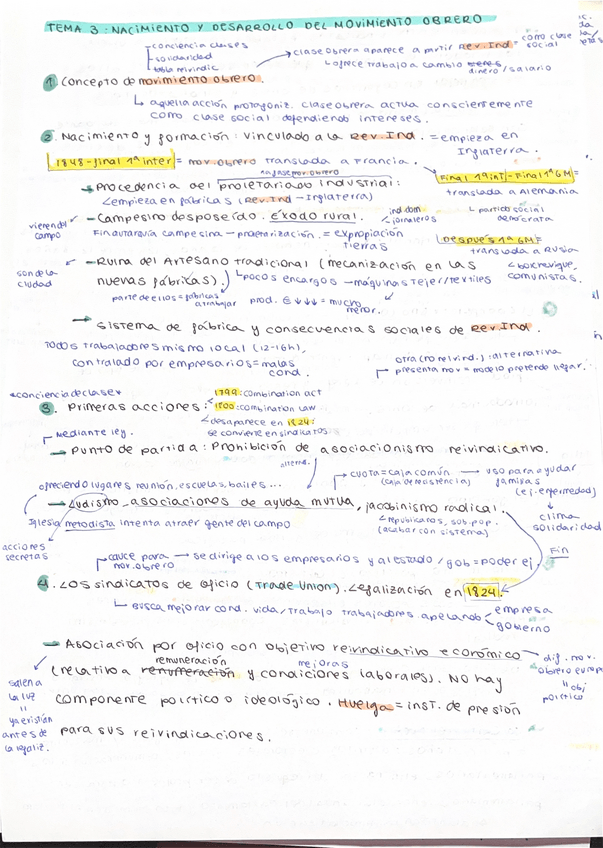 TEMA 3: NACIMIENTO Y DESARROLLO DEL MOVIMIENTO OBRERO
conciencia clases
solidaridad
tabla reivindic
clase obrera aparece a partir Rev.Ind = como clase social
ofrece trabajo a cambio dinero/salario
1. Concepto de movimiento obrero.
aquella acción protagoniz. clase obrera actua conscientemente
como clase social defendiendo intereses.
2. Nacimiento y formación: vinculado a la Rev. Ind. = empieza en
Inglaterra.
1848-final 1ª inter = mov. obrero translada a Francia.
Final 1ª int - Final 1ª GM =
translada a Alemania
partido social
demócrata
→ Procedencia del proletariado industrial:
empieza en fábricas (Rev.Ind - Inglaterra)
→ Campesino desposeído. Éxodo rural.
jornaleros
vienen del
campo
Fin autarquía campesina - proletarización. = expropiación
tierras
Después 1ª GM =
translada a Rusia
bolchevique,
comunistas.
→ Ruina del Artesano tradicional (mecanización en las
nuevas fábricas).
pocos encargos - máquinas tejer/textiles
son de la
ciudad
parte de ellos = fábricas
a trabajar
prod. € ↓↓↓ = mucho
menor.
→ Sistema de fábrica y consecuencias sociales de Rev.Ind.
Todos trabajadores mismo local (12-16h),
contralado por empresarios = malas
cond.
otra (no reivind.): alternativa
presenta mov = modelo pretende llegar.
*conciencia de clase*
3. Primeras acciones:
1799: combination act
1800: combination law
desaparece en 1824:
se convierte en sindicatos.
Mediante ley.
→ Punto de partida: Prohibición de asociacionismo reivindicativo.
altern.
cuota = caja común → uso para ayudar
(caja de resistencia)
familias
(ej. enfermedad)
clima
solidaridad
ofreciendo lugares reunión, escuelas, bailes...
→ Ludismo, asociaciones de ayuda mutua, jacobinismo radical.
republicanos, sob. pop.
(acabar con sistema)
Iglesia metodista intenta atraer gente del campo
acciones
secretas
cauce para
mov. obrero
→ se dirige a los empresarios y al estado/gob = poder ej.
Fin
4. Los sindicatos de oficio (Trade Union). Legalización en 1824.
Busca mejorar cond. vida/trabajo trabajadores apelando
empresa
gobierno
→ Asociación por oficio con objetivo reivindicativo económico
dif. mov.
obrero europ
obj
político
remuneración
mejoras
(relativo a renumeración y condiciones laborales). No hay
componente político o ideológico. Huelga = inst. de presión
para sus reivindicaciones.
salen a
la luz
ya existían
antes de
la legaliz.